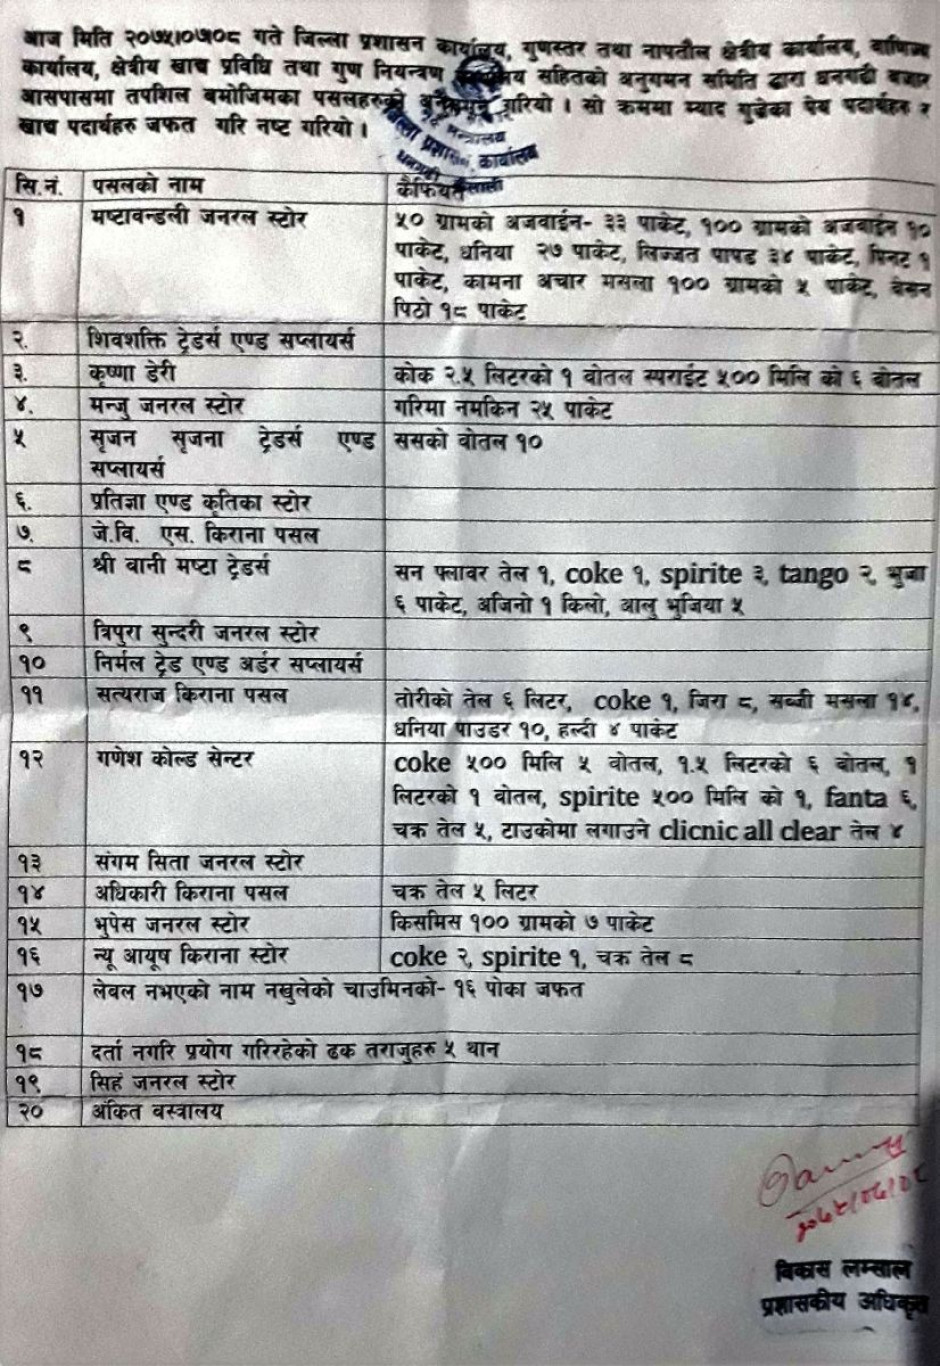 आज मिति २०७५।०७।०८ गते जिल्ला प्रशासन कार्यालय, गुणस्तर तथा नापतौल क्षेत्रीय कार्यालय, वाणिज्य
कार्यालय, क्षेत्रीय खाद्य प्रविधि तथा गुण नियन्त्रण सहितको अनुगमन समिति द्वारा धनगढी बजार
आसपासमा तपशिल बमोजिमका पसलहरुको गरियो । सो क्रममा म्याद गुज्रेका पेय पदार्थहरु र
खाद्य पदार्थहरु जफत गरि नष्ट गरियो ।
जिल्ला प्रशासन कार्यालय
सि.नं. पसलको नाम कैफियत
१ मष्टावन्डली जनरल स्टोर ५० ग्रामको अजवाईन- ३३ पाकेट, १०० ग्रामको अजवाईन १०
पाकेट, धनिया २७ पाकेट, लिज्जत पापड ३४ पाकेट, पिनट १
पाकेट, कामना अचार मसला १०० ग्रामको ५ पाकेट, बेसन
पिठो १८ पाकेट
२. शिवशक्ति ट्रेडर्स एण्ड सप्लायर्स
३. कृष्णा डेरी कोक २.५ लिटरको १ बोतल स्पराईट ५०० मिलि को ६ बोतल
४. मन्जु जनरल स्टोर गरिमा नमकिन २५ पाकेट
५ सृजन सृजना ट्रेडर्स एण्ड ससको बोतल १०
सप्लायर्स
६. प्रतिज्ञा एण्ड कृतिका स्टोर
७. जे.वि. एस. किराना पसल
८ श्री वानी मष्टा ट्रेडर्स सन फ्लावर तेल १, coke १, spirite ३, tango २, भुजा
६ पाकेट, अजिनो १ किलो, आलु भुजिया ५
९ त्रिपुरा सुन्दरी जनरल स्टोर
१० निर्मल ट्रेड एण्ड अर्डर सप्लायर्स
११ सत्यराज किराना पसल तोरीको तेल ६ लिटर, coke १, जिरा ८, सब्जी मसला १४,
धनिया पाउडर १०, हल्दी ४ पाकेट
१२ गणेश कोल्ड सेन्टर coke ५०० मिलि ५ बोतल, १.५ लिटरको ६ बोतल, १
लिटरको १ बोतल, spirite ५०० मिलि को १, fanta ६,
चक्र तेल ५, टाउकोमा लगाउने clicnic all clear तेल ४
१३ संगम सिता जनरल स्टोर
१४ अधिकारी किराना पसल चक्र तेल ५ लिटर
१५ भुपेस जनरल स्टोर किसमिस १०० ग्रामको ७ पाकेट
१६ न्यू आयूष किराना स्टोर coke २, spirite १, चक्र तेल ८
१७ लेवल नभएको नाम नखुलेको चाउमिनको- १६ पोका जफत
१८ दर्ता नगरि प्रयोग गरिरहेको ढक तराजुहरु ५ थान
१९ सिहं जनरल स्टोर
२० अंकित वस्त्रालय
विकास लम्साल
प्रशासकीय अधिकृत